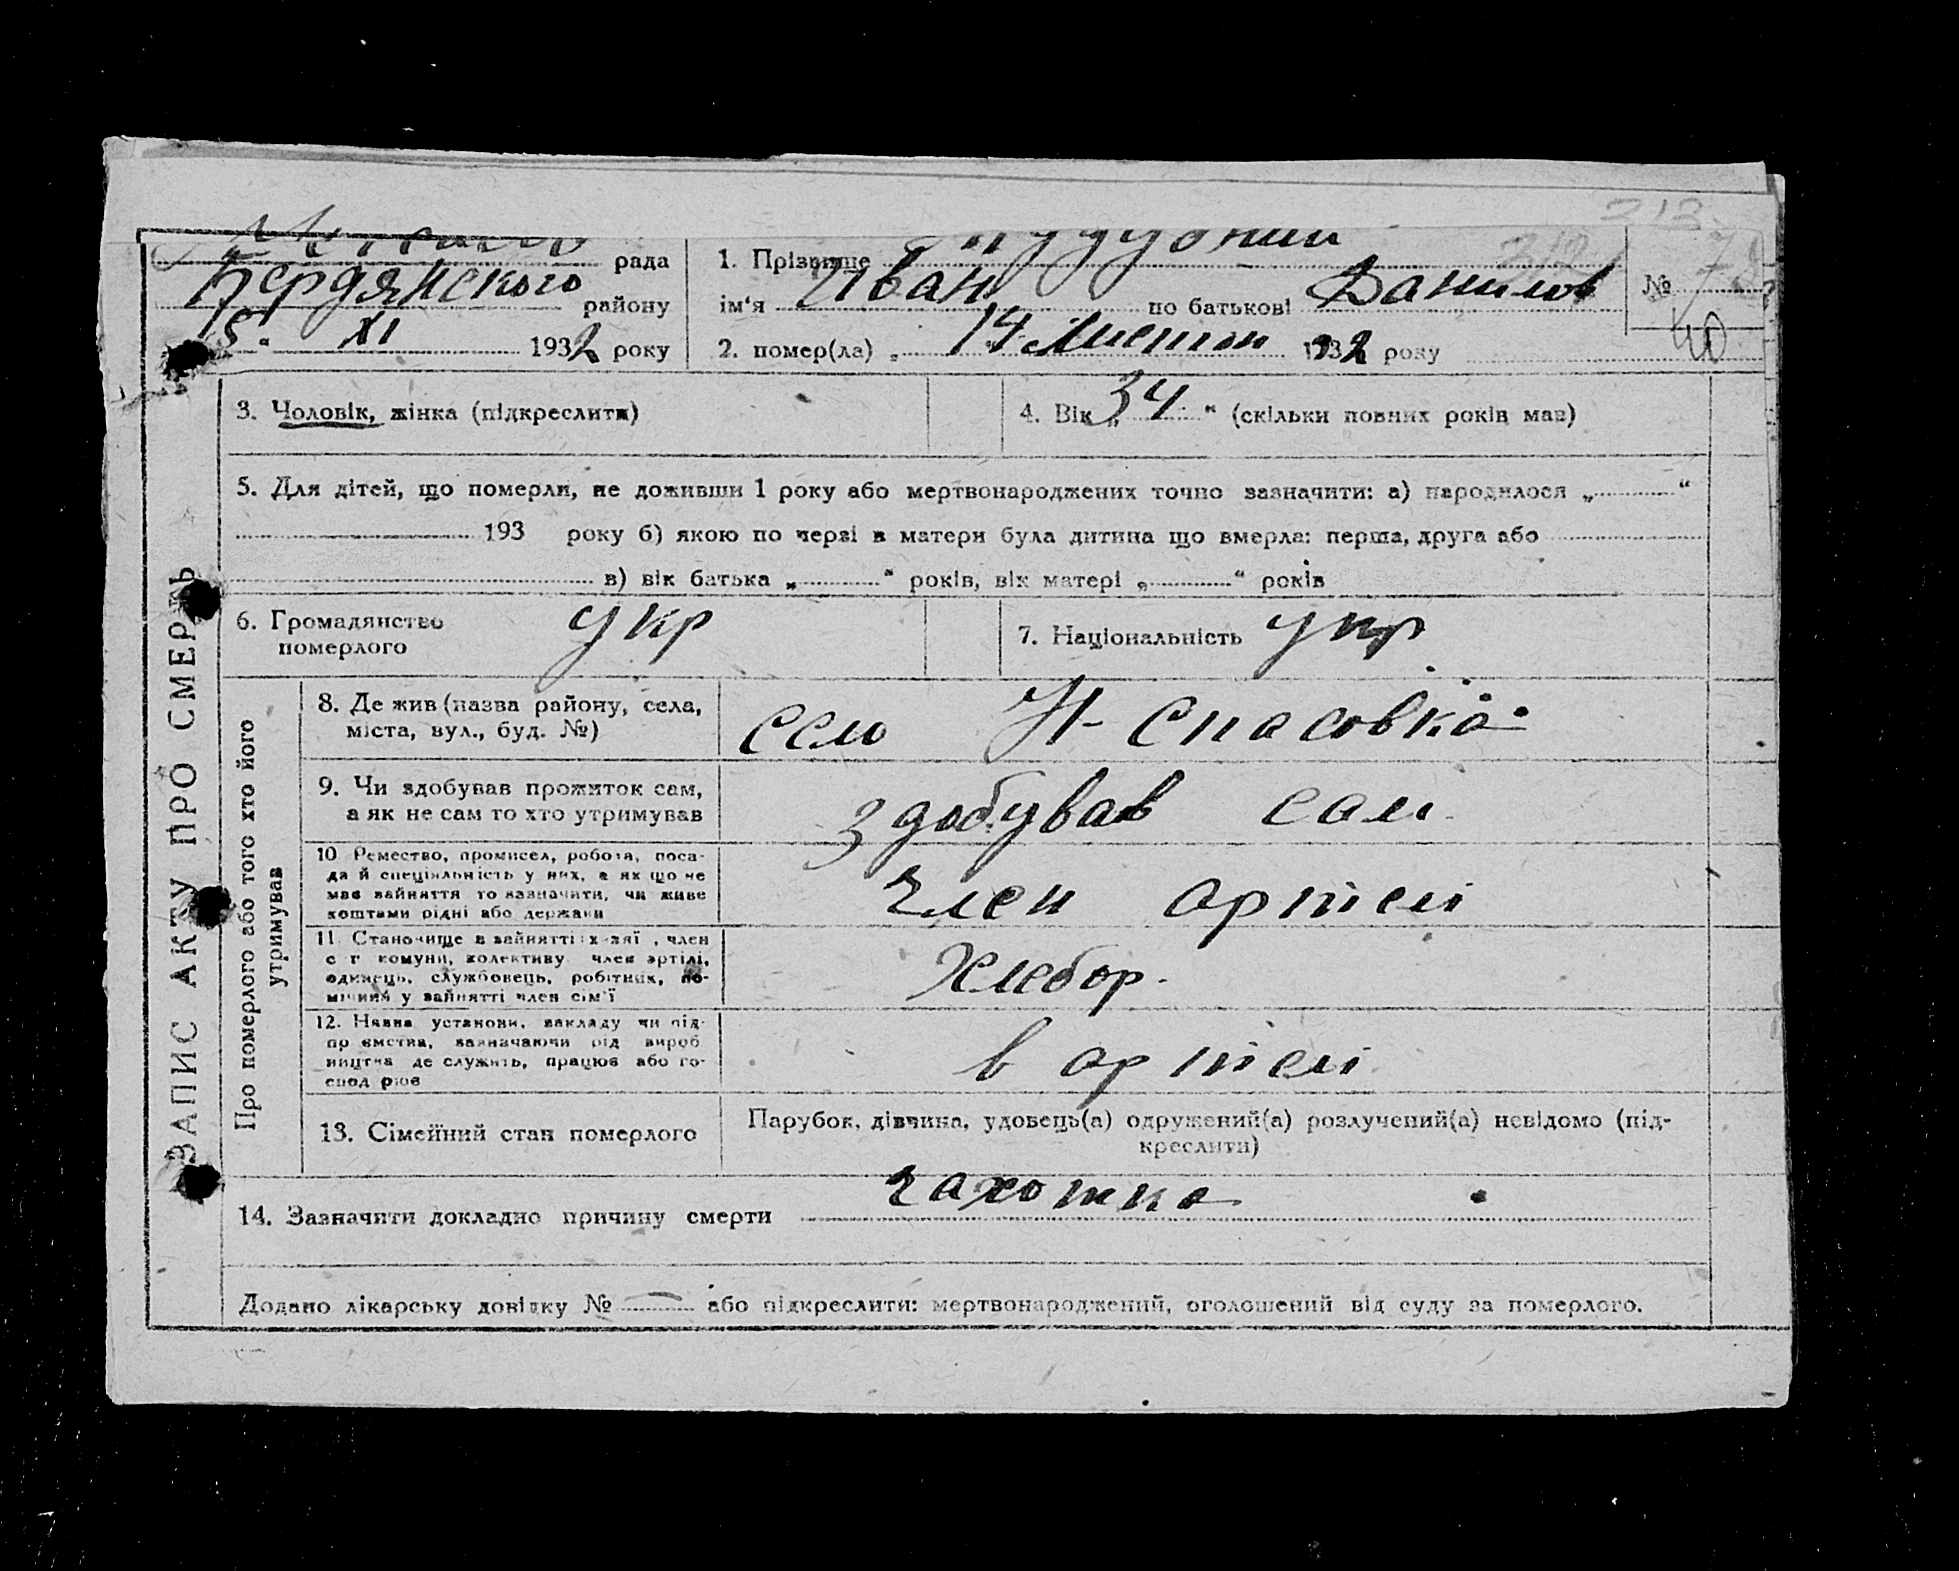 213
рада
1. Прізвище
Бердянского району
ім‘я Иван по батькові Данилов
№
40
XI 1932 року
2. помер(ла) „ 14 Листоп 1932 року
3. Чоловік, жінка (підкреслити)
4. Вік „ 34 “ (скільки повних років мав)
5. Для дітей, що померли, не доживши 1 року або мертвонароджених точно зазначити: а) народилося „ “
193 року б) якою по черзі в матери була дитина що вмерла: перша, друга або
в) вік батька „ “ років, вік матері „ “ років
6. Громадянство
померлого
укр
7. Національність укр
ЗАПИС АКТУ ПРО СМЕРТЬ
Про померлого або того хто його
утримував
8. Де жив (назва району, села,
міста, вул., буд. №)
село Н-Спасовка
9. Чи здобував прожиток сам,
а як не сам то хто утримував
здобував сам
10 Ремество, промисел, робота, поса-
да й спеціяльність у них, а як що не
мав зайняття то зазначити, чи живе
коштами рідні або держави
член артіли
11. Становище в зайнятті: х зяї , член
с г комуни, колективу член артілі,
одинець, службовець, робітник, по-
мічний у зайнятті член сім‘ї
Хлебор.
12. Назва установи, закладу чи під-
пр ємства, зазначаючи рід вироб
ництва де служить, працює або го-
спод рює
в артіли
13. Сімейний стан померлого
Парубок, дівчина, удовець(а) одружений(а) розлучений(а) невідомо (під-
креслити)
14. Зазначити докладно причину смерти чахотка
Додано лікарську довідку № — або підкреслити: мертвонароджений, оголошений від суду за померлого.